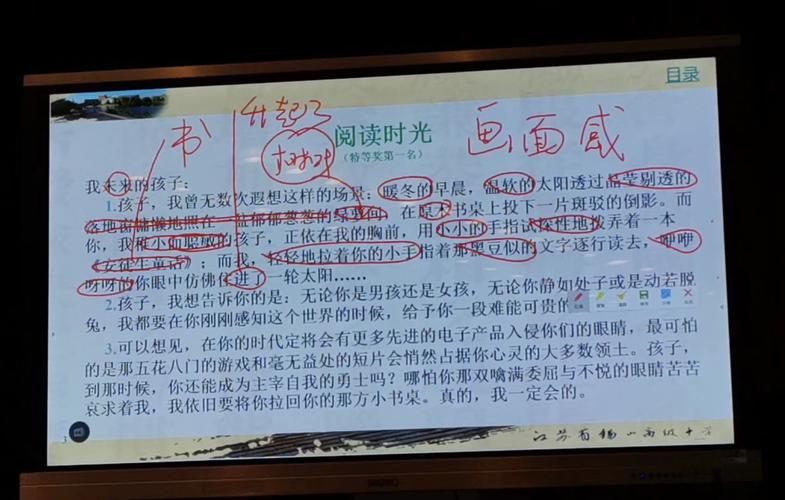 目录
书
画面感
阅读时光
（特等奖第一名）
我未来的孩子：
1.孩子，我曾无数次遐想这样的场景：暖冬的早晨，温软的太阳透过晶莹剔透的
落地窗慵懒地照在一盆郁郁葱葱的绿萝间，在原木书桌上投下一片斑驳的倒影。而
你，我稚小而聪敏的孩子，正依在我的胸前，用小小的手指试探性地拨弄着一本
《安徒生童话》；而我，轻轻地拉着你的小手指着那黑豆似的文字逐行读去，咿咿
呀呀的你眼中仿佛住进了一轮太阳……
2.孩子，我想告诉你的是：无论你是男孩还是女孩，无论你静如处子或是动若脱
兔，我都要在你刚刚感知这个世界的时候，给予你一段难能可贵的
3.可以想见，在你的时代定将会有更多先进的电子产品入侵你们的眼睛，最可怕
的是那五花八门的游戏和毫无益处的短片会悄然占据你心灵的大多数领土。孩子，
到那时候，你还能成为主宰自我的勇士吗？哪怕你那双噙满委屈与不悦的眼睛苦苦
哀求着我，我依旧要将你拉回你的那方小书桌。真的，我一定会的。
江苏省锡山高级中学